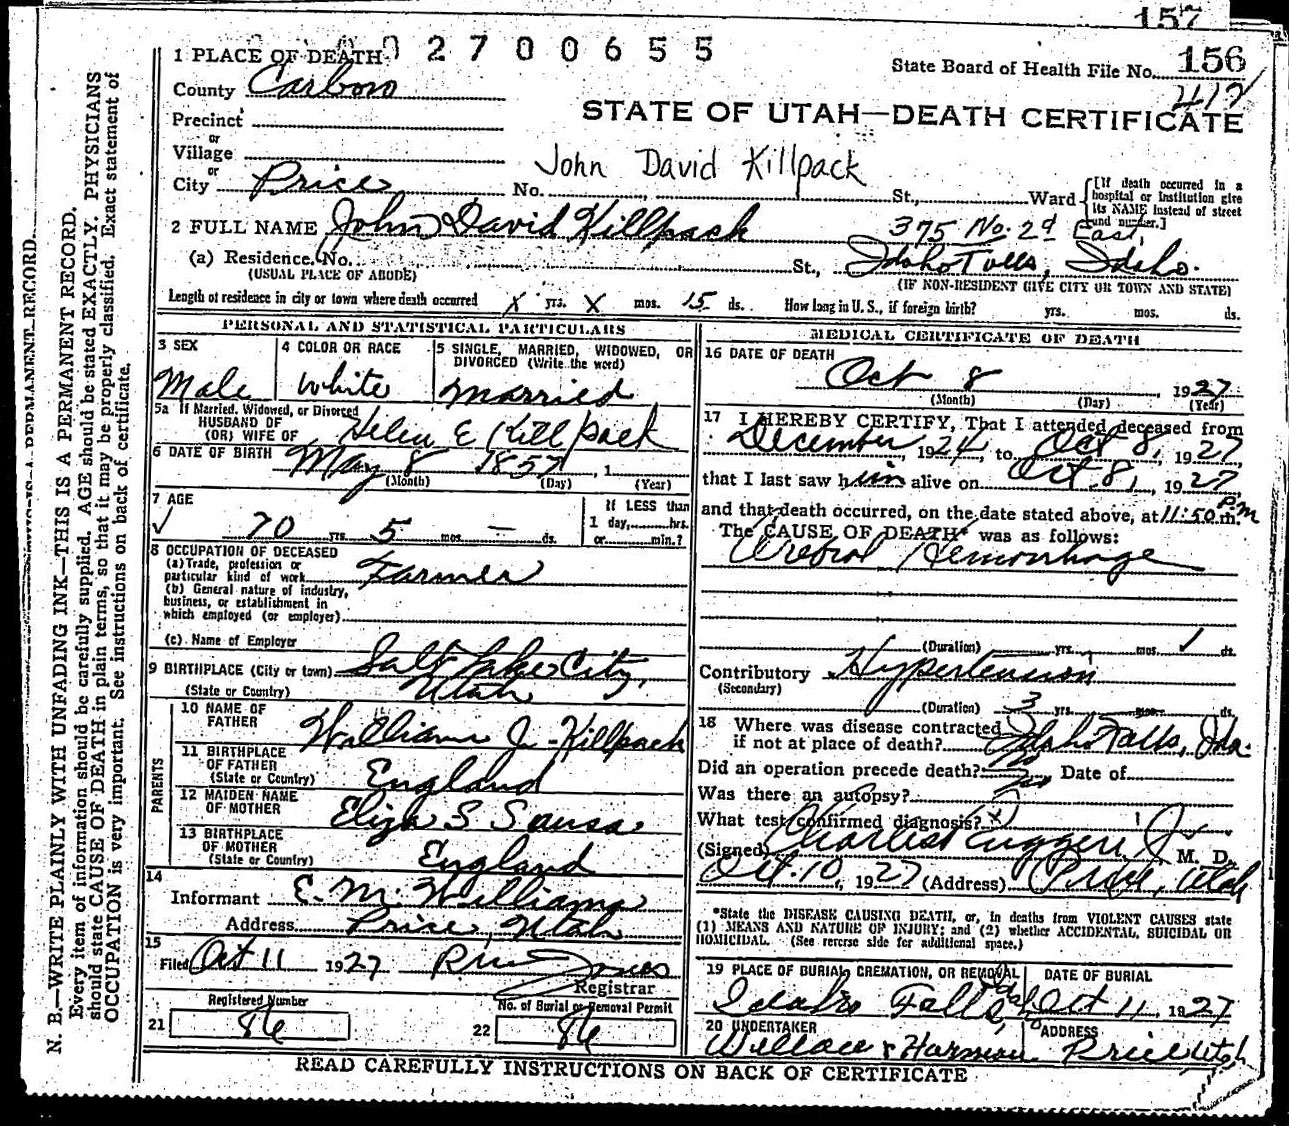 157
0 2 7 0 0 6 5 5
1 PLACE OF DEATH
State Board of Health File No. 156
417
County Carbon
STATE OF UTAH—DEATH CERTIFICATE
Precinct
or
Village
or
John David Killpack
City Price No. St., Ward
[If death occurred in a hospital or institution give its NAME instead of street and number.]
2 FULL NAME John David Killpack
375 No. 2d East,
(a) Residence. No. St., Idaho Falls, Idaho.
(USUAL PLACE OF ABODE) (IF NON-RESIDENT GIVE CITY OR TOWN AND STATE)
Length of residence in city or town where death occurred x yrs. x mos. 15 ds. How long in U. S., if foreign birth? yrs. mos. ds.
PERSONAL AND STATISTICAL PARTICULARS
3 SEX
Male
4 COLOR OR RACE
White
5 SINGLE, MARRIED, WIDOWED, OR DIVORCED (Write the word)
Married
5a If Married, Widowed, or Divorced
HUSBAND OF
(OR) WIFE OF Helen E Killpack
6 DATE OF BIRTH May 8 1857, 1
(Month) (Day) (Year)
7 AGE
70 yrs. 5 mos. — ds.
If LESS than
1 day, hrs.
or min.?
8 OCCUPATION OF DECEASED
(a) Trade, profession or
particular kind of work Farmer
(b) General nature of industry,
business, or establishment in
which employed (or employer)
(c) Name of Employer
9 BIRTHPLACE (City or town) Salt Lake City,
(State or Country) Utah
PARENTS
10 NAME OF
FATHER William J. Killpack
11 BIRTHPLACE
OF FATHER
(State or Country) England
12 MAIDEN NAME
OF MOTHER Eliza S
13 BIRTHPLACE
OF MOTHER
(State or Country) England
14
Informant E. M. Williams
Address Price, Utah
15
Filed Oct 11 1927
Registrar
Registered Number
21 86
No. of Burial or Removal Permit
22 86
MEDICAL CERTIFICATE OF DEATH
16 DATE OF DEATH
Oct 8, 1927
(Month) (Day) (Year)
17 I HEREBY CERTIFY, That I attended deceased from
December, 1924, to Oct 8, 1927
that I last saw him alive on Oct. 8, 1927
and that death occurred, on the date stated above, at 11:50 P.M m.
The CAUSE OF DEATH* was as follows:
Cerebral Hemorrhage
(Duration) yrs. mos. 1 ds.
Contributory Hypertension
(Secondary)
(Duration) 3 yrs. mos. ds.
18 Where was disease contracted
if not at place of death? Idaho Falls, Ida.
Did an operation precede death? No Date of
Was there an autopsy?
What test confirmed diagnosis?
(Signed) M. D.
Oct. 10, 1927 (Address) Price, Utah
*State the DISEASE CAUSING DEATH, or, in deaths from VIOLENT CAUSES state
(1) MEANS AND NATURE OF INJURY; and (2) whether ACCIDENTAL, SUICIDAL OR
HOMICIDAL. (See reverse side for additional space.)
19 PLACE OF BURIAL, CREMATION, OR REMOVAL
Idaho Falls, Idaho
DATE OF BURIAL
Oct 11, 1927
20 UNDERTAKER
Wallace & Harmon
ADDRESS
Price, Utah
READ CAREFULLY INSTRUCTIONS ON BACK OF CERTIFICATE
N. B.—WRITE PLAINLY WITH UNFADING INK—THIS IS A PERMANENT RECORD.
Every item of information should be carefully supplied. AGE should be stated EXACTLY. PHYSICIANS
should state CAUSE OF DEATH in plain terms, so that it may be properly classified. Exact statement of
OCCUPATION is very important. See instructions on back of certificate.